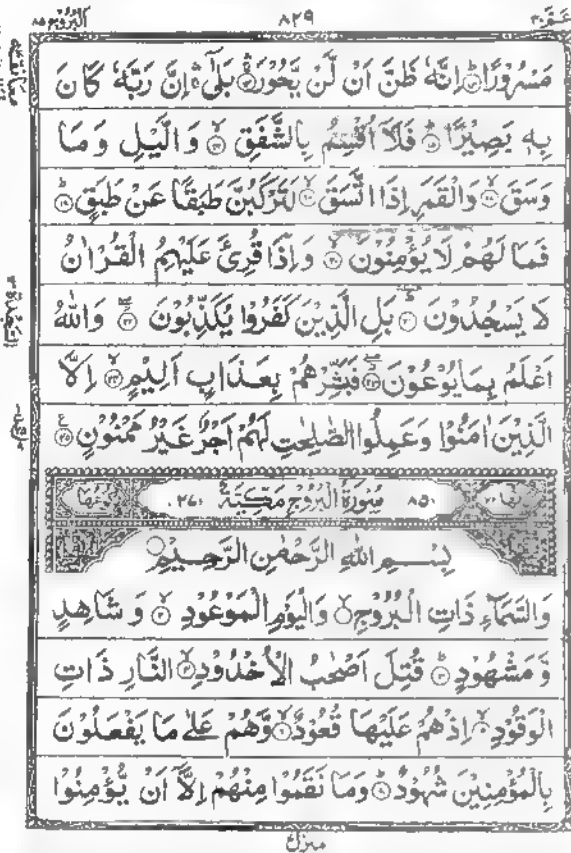 عـم ٣٠ ٨٢٩ البروج ٨٥
مَسْرُوْرًا ۟ؕ اِنَّهٗ ظَنَّ اَنْ لَّنْ يَّحُوْرَ ۟ۚۛ بَلٰۤى ۛۚ اِنَّ رَبَّهٗ كَانَ
بِهٖ بَصِيْرًا ۟ؕ فَلَاۤ اُقْسِمُ بِالشَّفَقِ ۟ۙ وَالَّيْلِ وَمَا
وَسَقَ ۟ۙ وَالْقَمَرِ اِذَا اتَّسَقَ ۟ۙ لَتَرْكَبُنَّ طَبَقًا عَنْ طَبَقٍ ۟ؕ
فَمَا لَهُمْ لَا يُؤْمِنُوْنَ ۟ۙ وَاِذَا قُرِئَ عَلَيْهِمُ الْقُرْاٰنُ
لَا يَسْجُدُوْنَ ۟ؕ بَلِ الَّذِيْنَ كَفَرُوْا يُكَذِّبُوْنَ ۟ۖ وَاللّٰهُ
اَعْلَمُ بِمَا يُوْعُوْنَ ۟ۖ فَبَشِّرْهُمْ بِعَذَابٍ اَلِيْمٍ ۟ۙ اِلَّا
الَّذِيْنَ اٰمَنُوْا وَعَمِلُوا الصّٰلِحٰتِ لَهُمْ اَجْرٌ غَيْرُ مَمْنُوْنٍ ۟
٨٥ سُوْرَةُ الْبُرُوْجِ مَكِّيَّةٌ ٢٧
بِسْمِ اللّٰهِ الرَّحْمٰنِ الرَّحِيْمِ
وَالسَّمَآءِ ذَاتِ الْبُرُوْجِ ۟ۙ وَالْيَوْمِ الْمَوْعُوْدِ ۟ۙ وَشَاهِدٍ
وَّمَشْهُوْدٍ ۟ؕ قُتِلَ اَصْحٰبُ الْاُخْدُوْدِ ۟ۙ النَّارِ ذَاتِ
الْوَقُوْدِ ۟ۙ اِذْ هُمْ عَلَيْهَا قُعُوْدٌ ۟ۙ وَّهُمْ عَلٰى مَا يَفْعَلُوْنَ
بِالْمُؤْمِنِيْنَ شُهُوْدٌ ۟ؕ وَمَا نَقَمُوْا مِنْهُمْ اِلَّاۤ اَنْ يُّؤْمِنُوْا
منزل